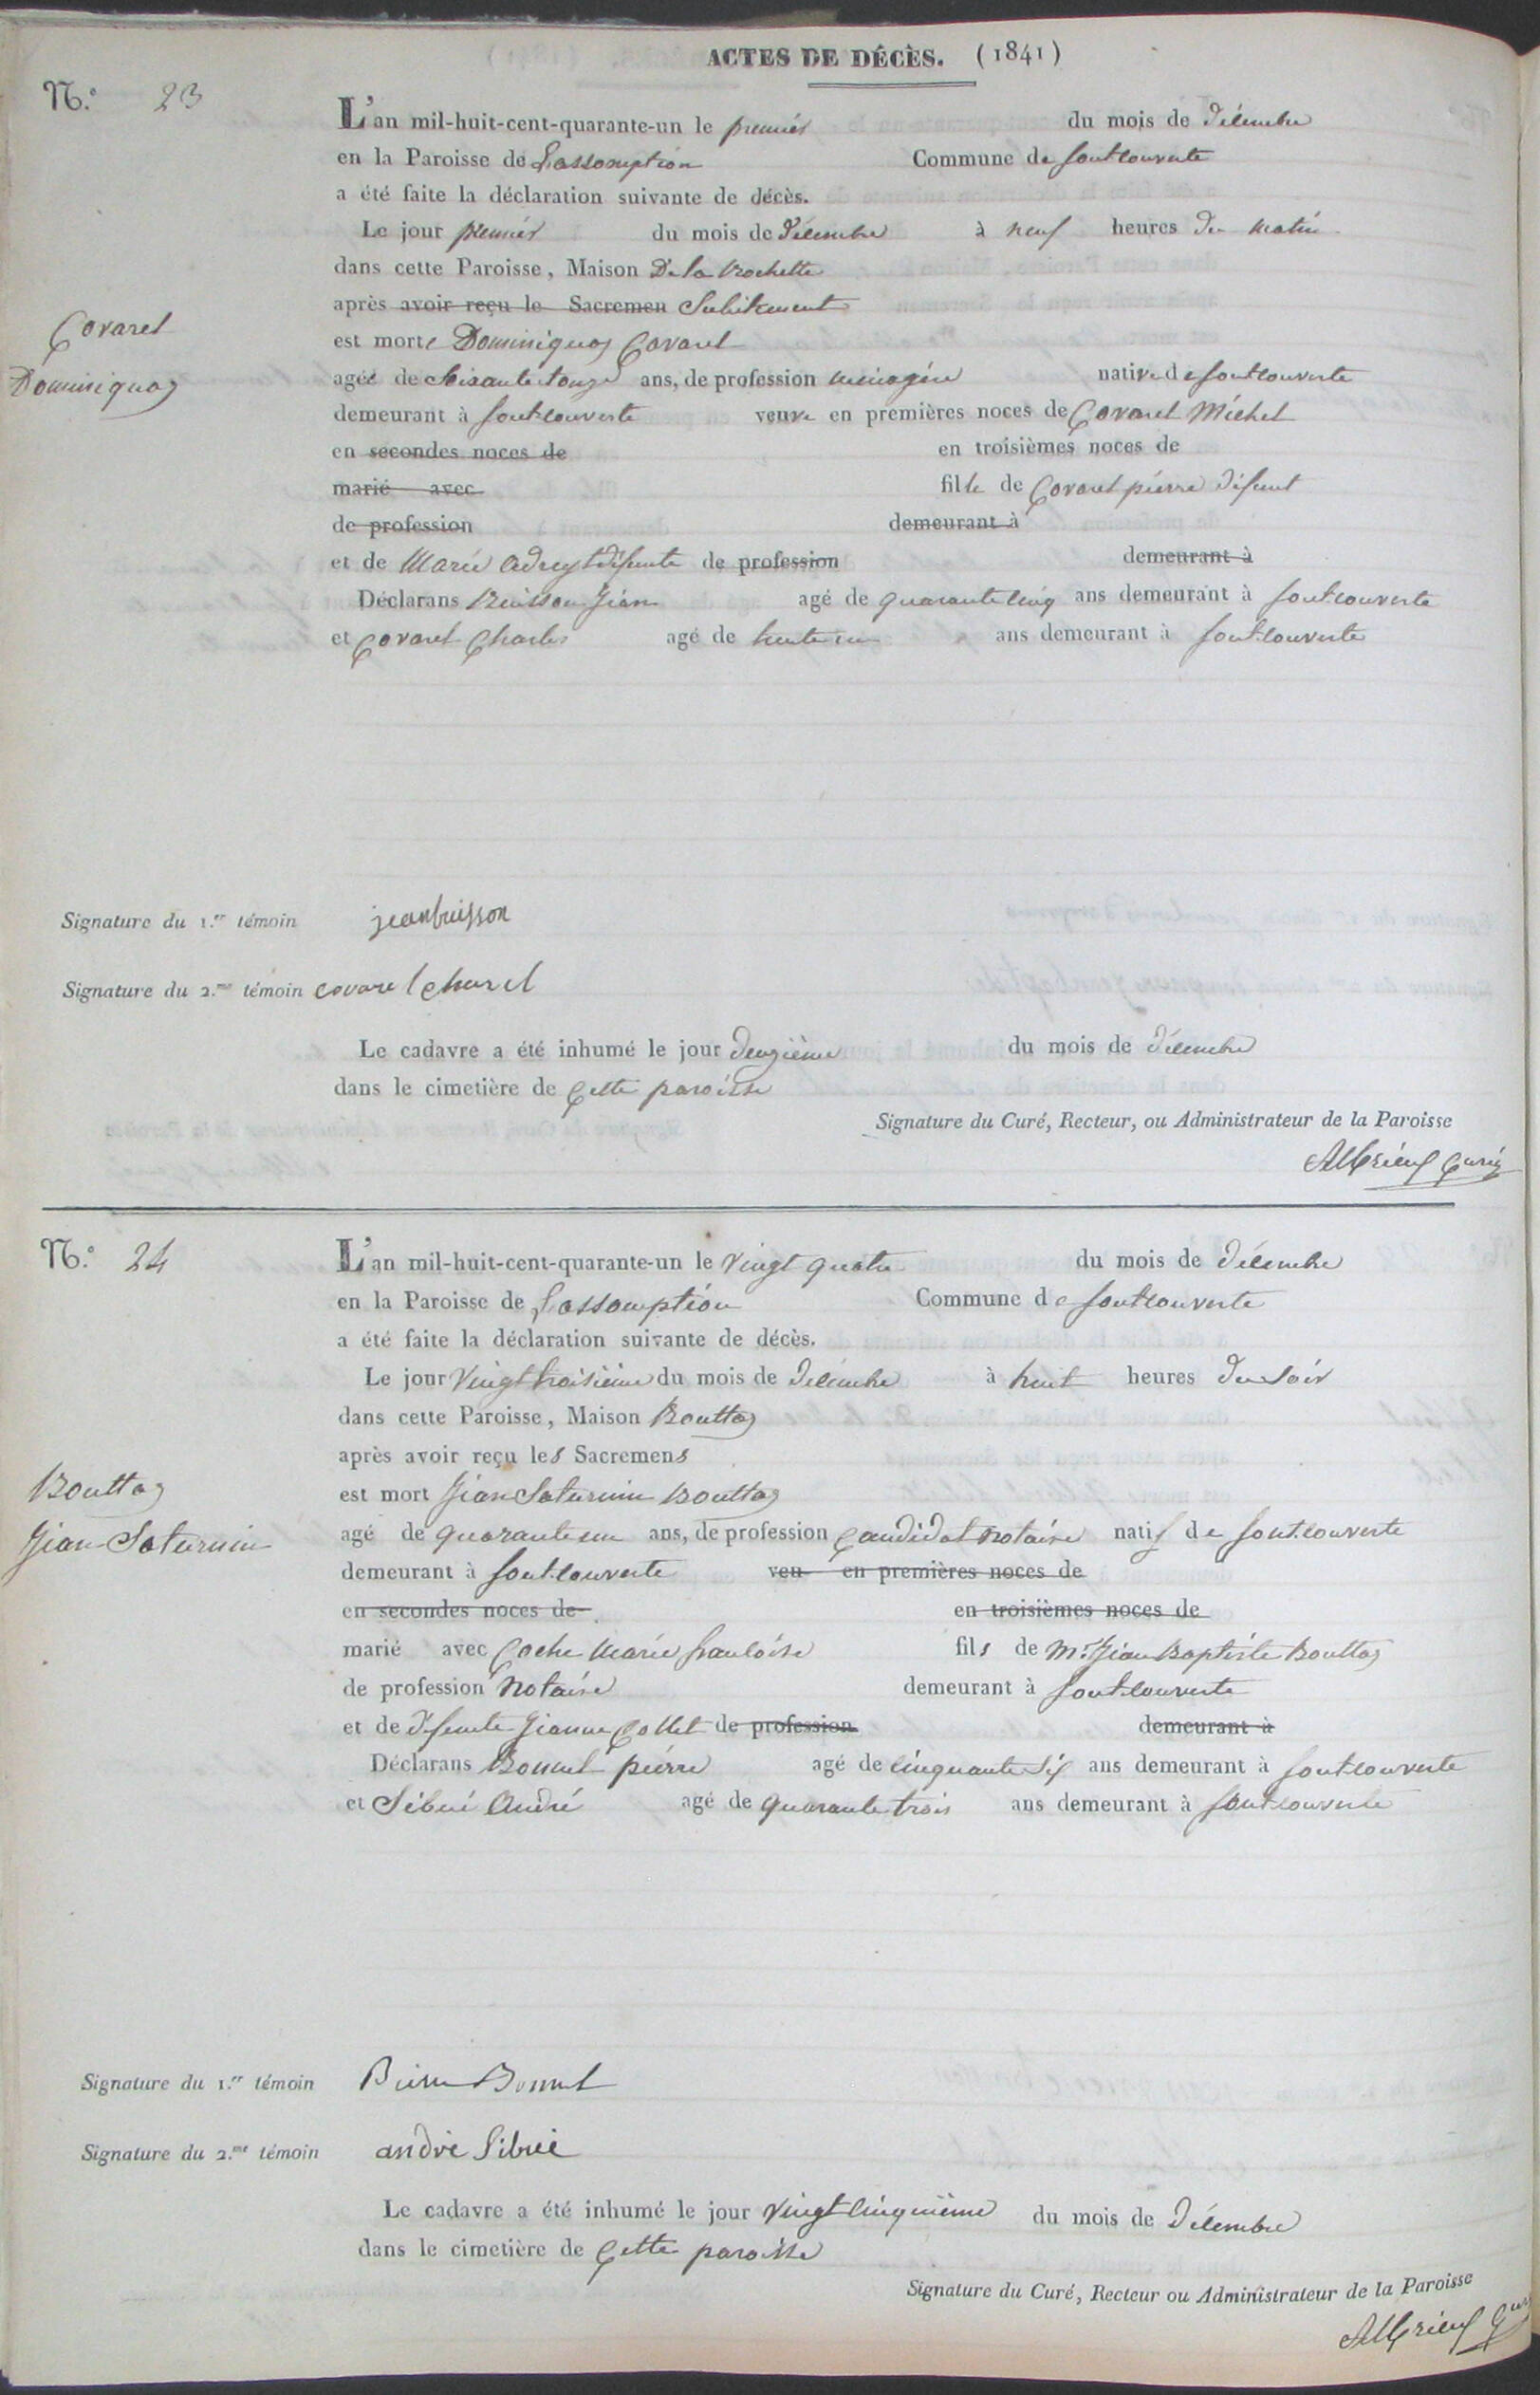 ACTES DE DÉCÈS. (1841)
N.o 23
L'an mil-huit-cent-quarante-un le premier du mois de Décembre
en la Paroisse de L'assomption Commune de fontcouverte
a été faite la déclaration suivante de décès.
Le jour premier du mois de Décembre à neuf heures du matin
dans cette Paroisse, Maison De la Rochette
après avoir reçu le Sacremen Subitement
Covarel
est morte Dominique Covarel
Dominique
agée de soisante et onze ans, de profession ménagère native de fontcouverte
demeurant à fontcouverte veuve en premières noces de Covarel Michel
en secondes noces de en troisièmes noces de
marié avec fille de Covarel pierre défunt
de profession demeurant à
et de Marie défunte de profession demeurant à
Déclarans Buisson Jean agé de quarante cinq ans demeurant à fontcouverte
et Covarel Charles agé de trente un ans demeurant à fontcouverte
Signature du 1.er témoin jean buisson
Signature du 2.me témoin covarel charel
Le cadavre a été inhumé le jour deuzième du mois de Décembre
dans le cimetière de Cette paroisse
Signature du Curé, Recteur, ou Administrateur de la Paroisse
Curé
N.o 24
L'an mil-huit-cent-quarante-un le vingt quatre du mois de Décembre
en la Paroisse de L'assomption Commune de fontcouverte
a été faite la déclaration suivante de décès.
Le jour vingt troisième du mois de Décembre à huit heures du soir
dans cette Paroisse, Maison Bouttaz
après avoir reçu les Sacremens
Bouttaz
est mort Jean Saturnin Bouttaz
Jean Saturnin
agé de quarante un ans, de profession Candidat notaire natif de fontcouverte
demeurant à fontcouverte veu en premières noces de
en secondes noces de en troisièmes noces de
marié avec Coche Marie françoise fils de Mr. Jean Baptiste Bouttaz
de profession Notaire demeurant à fontcouverte
et de défunte Jeanne Collet de profession demeurant à
Déclarans Bonnel pierre agé de cinquante six ans demeurant à fontcouverte
et Sibué André agé de quarante trois ans demeurant à fontcouverte
Signature du 1.er témoin Pierre Bonnel
Signature du 2.me témoin andré Sibué
Le cadavre a été inhumé le jour vingt cinquième du mois de Décembre
dans le cimetière de Cette paroisse
Signature du Curé, Recteur ou Administrateur de la Paroisse